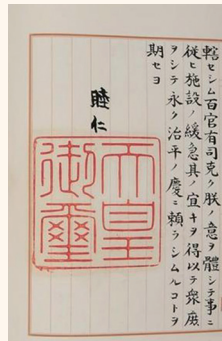 轄セシム百官有司克ク朕ノ意ヲ體シテ事ニ
從ヒ施設ノ緩急其ノ宜キヲ得以テ衆庶
ヲシテ永ク治平ノ慶ニ賴ラシムルコトヲ
期セヨ
睦仁
天皇
御璽